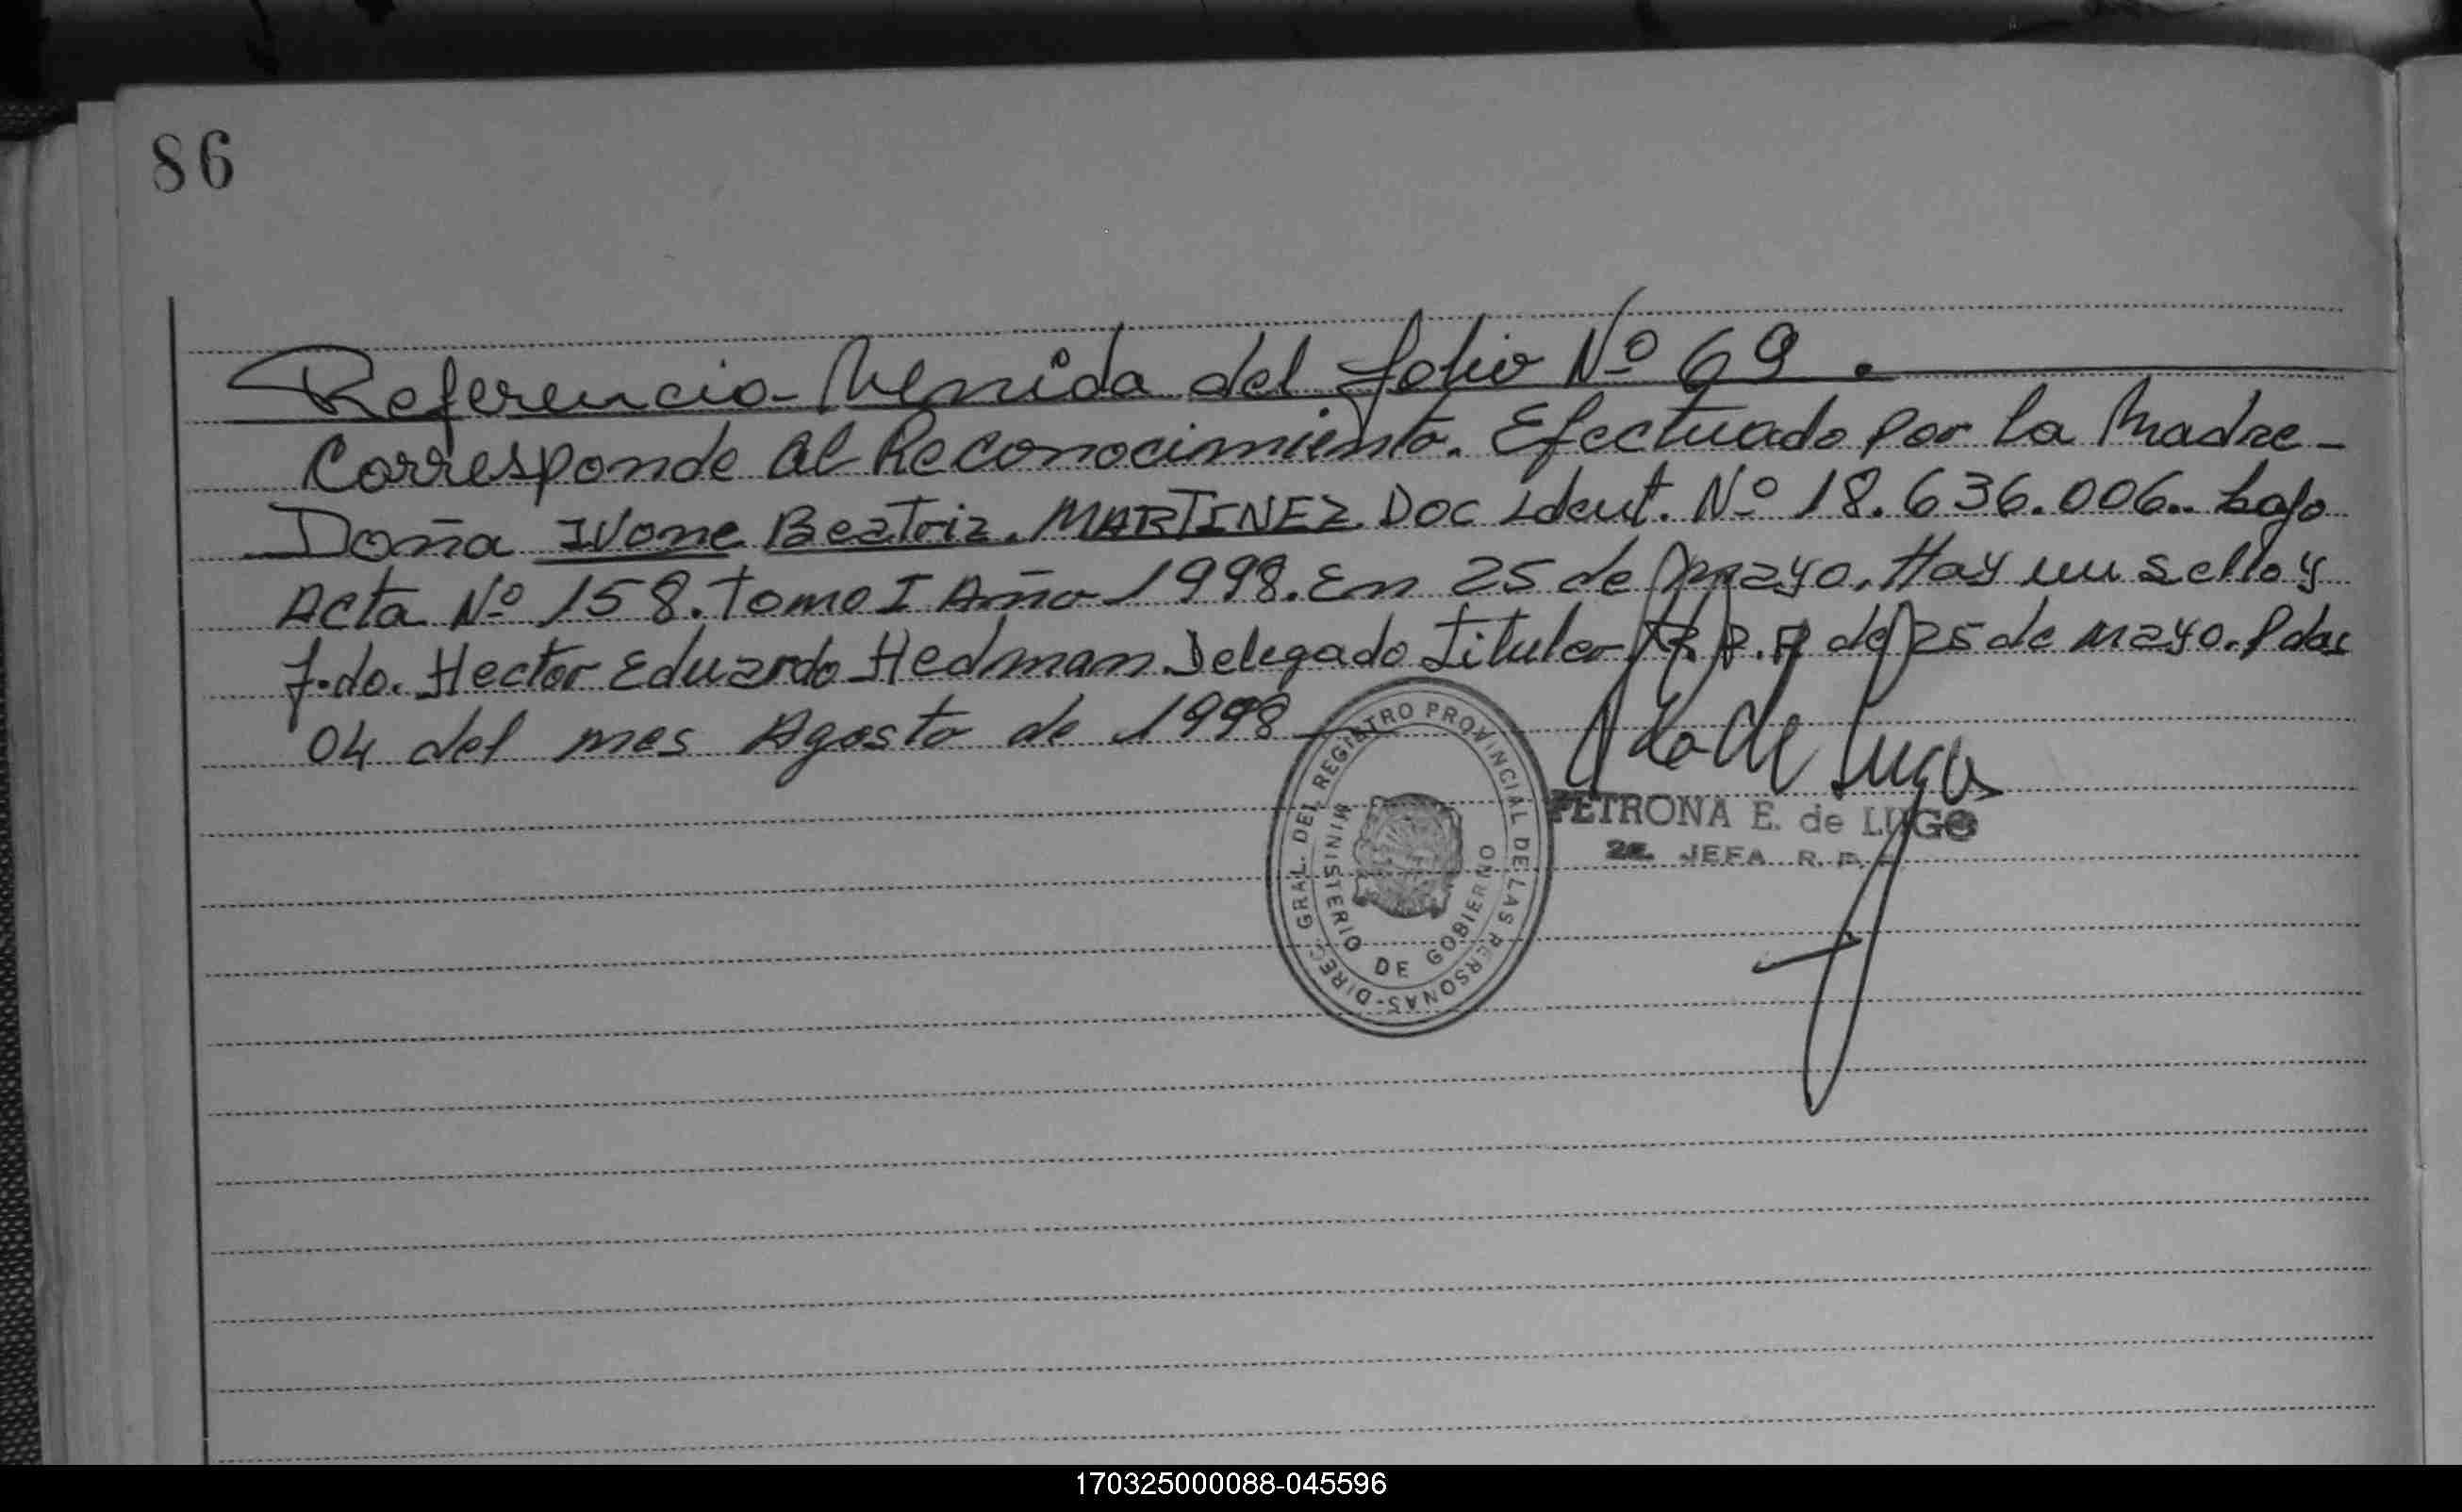 86
Referencia Venida del folio Nº 69.
Corresponde al Reconocimiento. Efectuado por la Madre-
Doña Ivone Beatriz. MARTINEZ. Doc Ident. Nº 18.636.006.. bajo
Acta Nº 158. Tomo I Año 1998. En 25 de mayo. Hay un sello y
f.do. Hector Eduardo Hedman Delegado Titular R.P. de 25 de mayo. P das
04 del mes Agosto de 1998
DIREC. GRAL. DEL REGISTRO PROVINCIAL DE LAS PERSONAS-
MINISTERIO DE GOBIERNO
de Lugo
PETRONA E. de LUGO
2a. JEFA R. P.
170325000088-045596